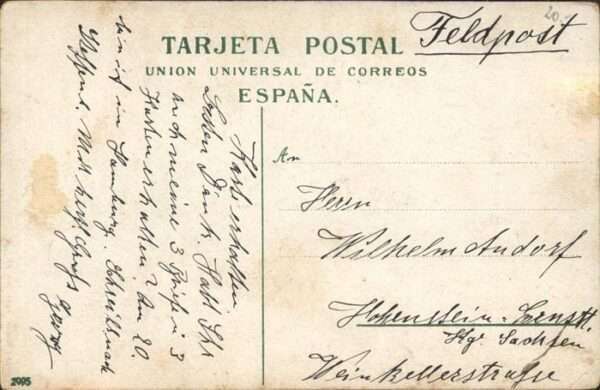 20.
Feldpost
TARJETA POSTAL
UNION UNIVERSAL DE CORREOS
ESPAÑA.
An
Herrn
Wilhelm Andorf
Hohenstein-Ernstt.
Kgr Sachsen
Weinkellerstrasse
Karte erhalten.
Besten Dank. Habt Ihr
auch meine 3 Briefe u 3
Karten erhalten? Am 20.
bin ich in Hamburg. Schreibt nach
Mit herzl. Gruß
Georg
2995